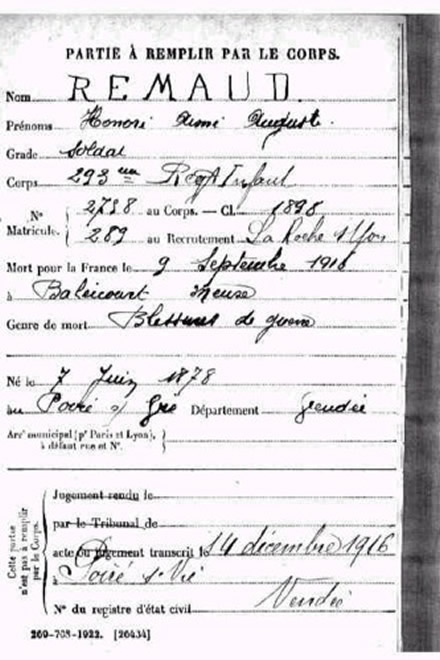 PARTIE À REMPLIR PAR LE CORPS.
Nom REMAUD.
Prénoms Honoré Aimé Auguste
Grade Soldat
Corps 293 Régt Infant
N° 2738 au Corps. — Cl. 1898
Matricule. 289 au Recrutement La Roche s/Yon
Mort pour la France le 9 Septembre 1916
à Baleicourt Meuse
Genre de mort Blessures de guerre
Né le 7 Juin 1878
au Poiré s/ Vie Département Vendée
Arr<sup>t</sup> municipal (p<sup>r</sup> Paris et Lyon),
à défaut rue et N°.
Cette partie n'est pas à remplir par le Corps.
Jugement rendu le
par le Tribunal de
acte ou jugement transcrit le 14 décembre 1916
à Poiré s-Vie
Vendée
N° du registre d'état civil
269-708-1922. [26434]